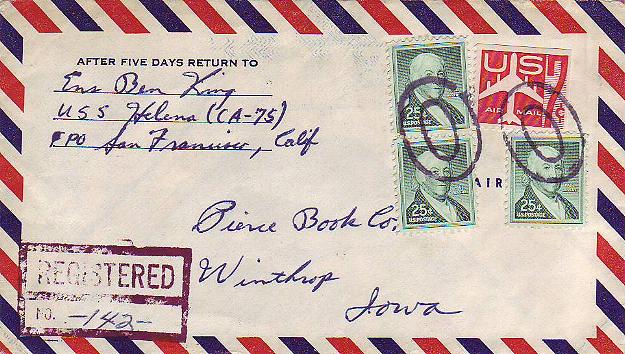 AFTER FIVE DAYS RETURN TO
Ens Ben King
USS Helena (CA-75)
FPO San Francisco, Calif
25¢
U.S. POSTAGE
US
AIR MAIL
7¢
25¢
U.S. POSTAGE
25¢
U.S. POSTAGE
AIR
Pierce Book Co.
Winthrop
Iowa
REGISTERED
NO. -142-